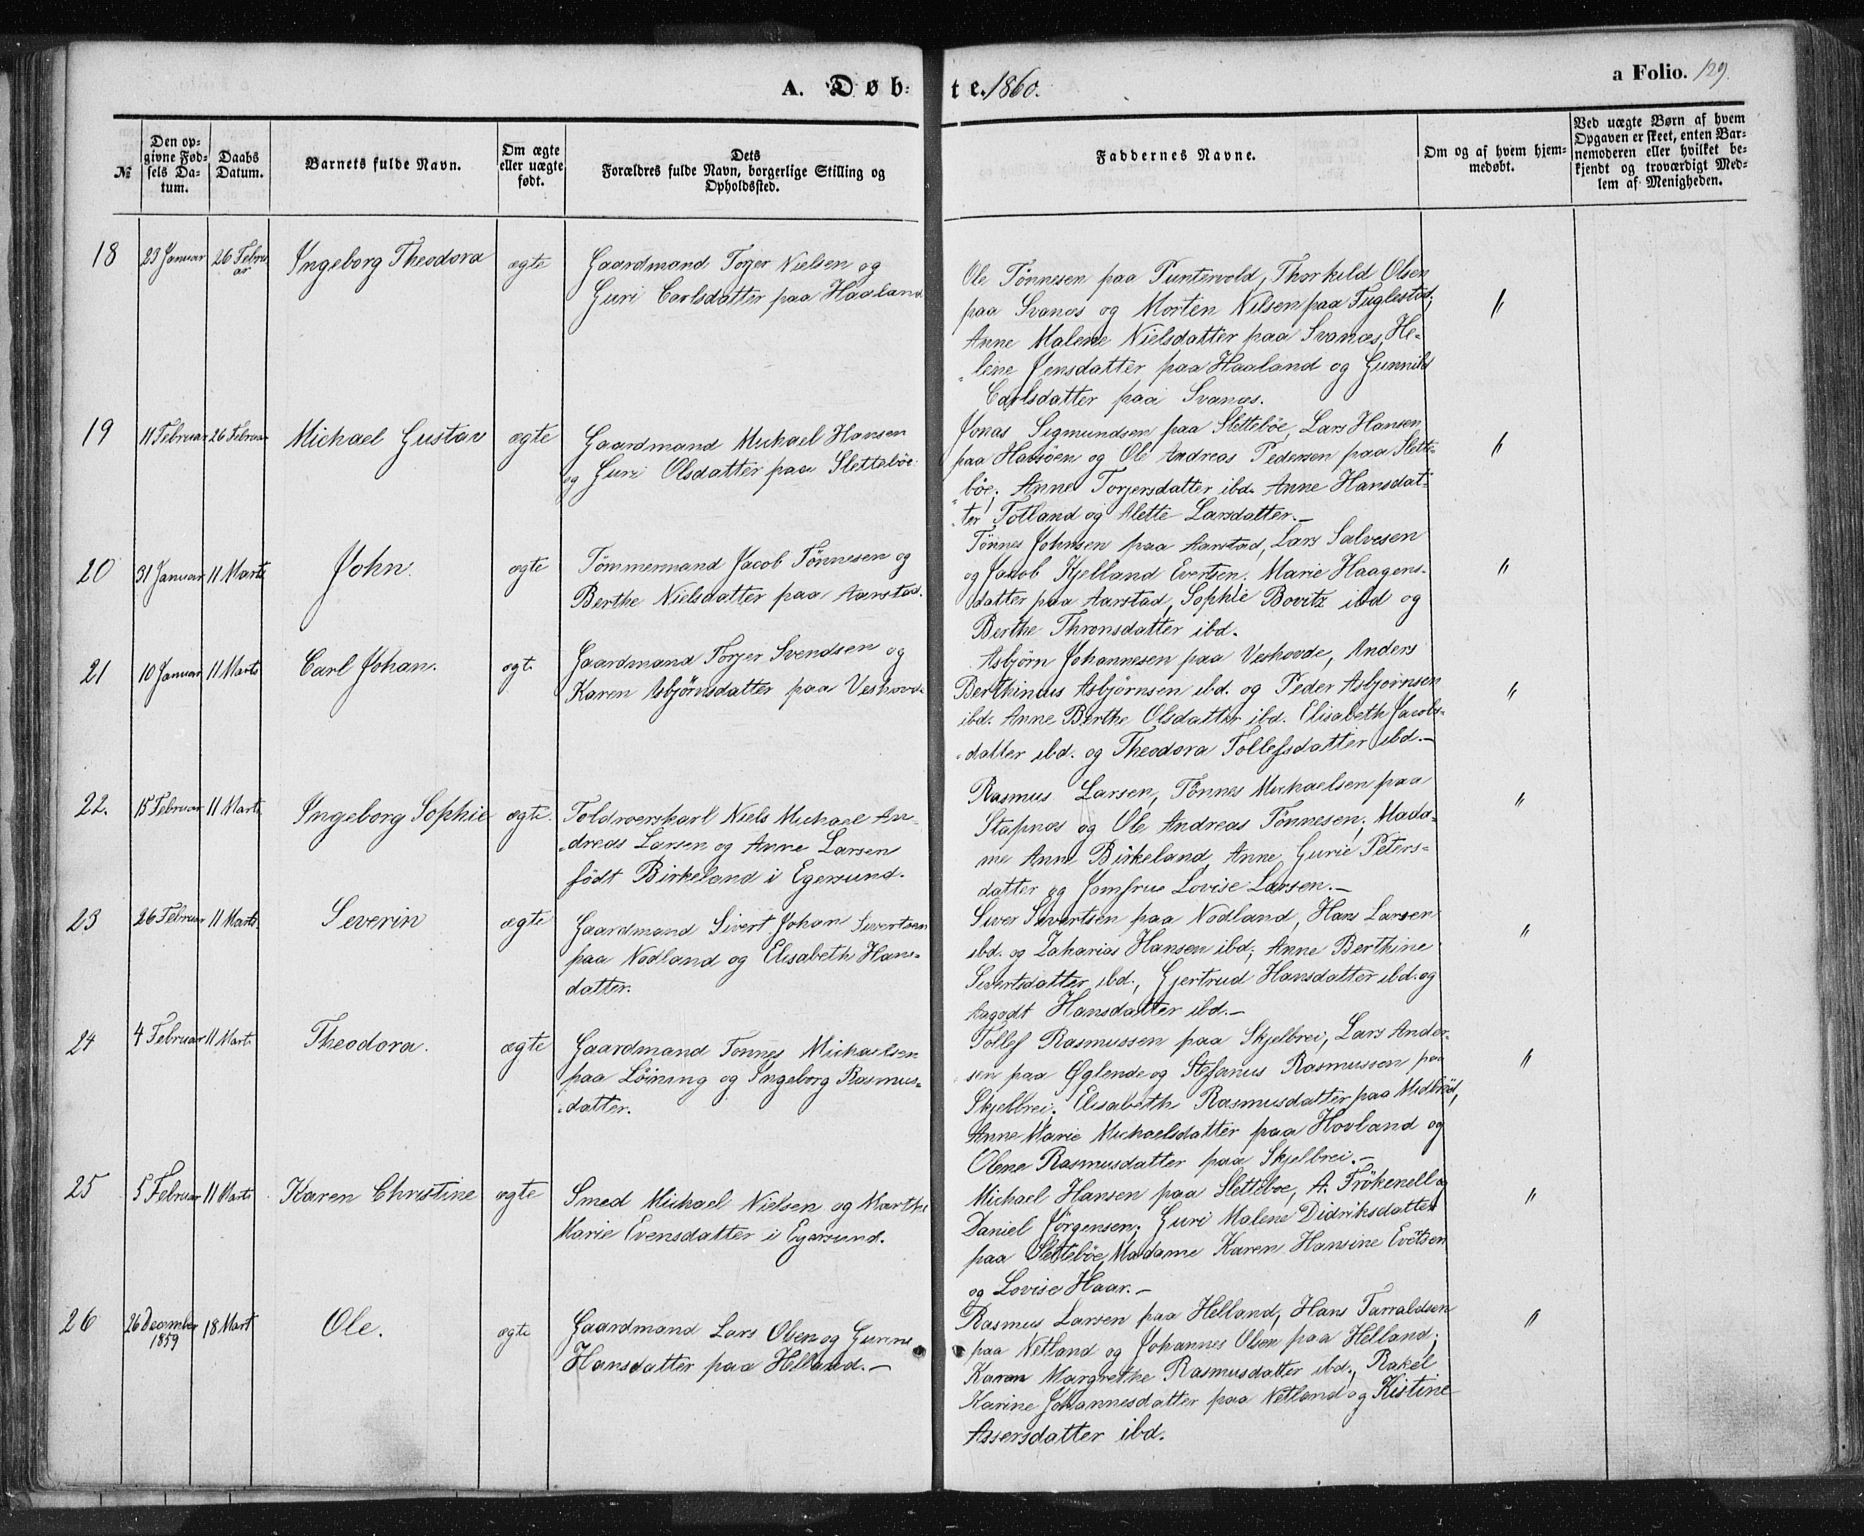 A. Døb-te. 1860.
a Folio. 129.
№
Den opgivne Fødsels Datum.
Daabs Datum.
Barnets fulde Navn.
Om ægte eller uægte født.
Dets Forældres fulde Navn, borgerlige Stilling og Opholdssted.
Faddernes Navne.
Om og af hvem hjemmedøbt.
Ved uægte Børn af hvem Opgaven er skeet, enten Barnemoderen eller hvilket bekjendt og troværdigt Medlem af Menigheden.
18 23 Januar 26 Februar Ingeborg Theodora ægte
Gaardmand Torjer Nielsen og
Guri Carlsdatter paa Haaland.
Ole Tønnesen paa Puntervold, Thorkild Olsen
paa Svanæs og Morten Nilsen paa Fuglestad;
Anne Malene Nielsdatter paa Svanæs, He-
lene Jensdatter paa Haaland og Gunnild
Carlsdatter paa Svanæs.
"
19 11 Februar 26 Februar Michael Gustav ægte
Gaardmand Michael Hansen
og Guri Olsdatter paa Slettebøe
Jonas Sigmundsen paa Slettebøe, Lars Hansen
paa Havsøen og Ole Andreas Pedersen paa Slette-
bøe; Anne Torjersdatter ibd. Anne Hansdat-
ter Totland og Alette Larsdatter.—
"
20 31 Januar 11 Marts John. ægte
Tømmermand Jacob Tønnesen og
Berthe Nielsdatter paa Aarstad.
Tønnes Johnsen paa Aarstad, Lars Salvesen
og Jacob Kjelland Evertsen; Marie Haagens-
datter paa Aarstad, Sophie Bovitz ibd og
Berthe Thronsdatter ibd.
"
21 10 Januar 11 Marts Carl Johan. ægt.
Gaardmand Torjer Svendsen og
Karen Asbjørnsdatter paa Veshovd.
Asbjørn Johannesen paa Veshovde, Anders
Berthinius Asbjørnsen ibd. og Peder Asbjørnsen
ibd. Anne Birthe Olsdatter ibd. Elisabeth Jacobs-
datter ibd. og Theodora Tollefsdatter ibd.—
"
22. 15 Februar 11 Marts Ingeborg Sophie ægte.
Toldroerskarl Niels Michael An-
dreas Larsen og Anne Larsen
født Birkeland i Egersund.
Rasmus Larsen, Tønnes Michaelsen paa
Stapnæs og Ole Andreas Tønnesen; Mada-
me Anne Birkeland, Anne Gurie Peters-
datter og Jomfrue Lovise Larsen.—
"
23 26 Februar 11 Marts Severin ægte
Gaardmand Sivert Johan Sivertsen
paa Nodland og Elisabeth Hans-
datter.
Siver Sivertsen paa Nodland, Hans Larsen
ibd. og Zakarias Hansen ibd; Anne Berthine
Sivertsdatter ibd., Gjertrud Hansdatter ibd. og
Aagodt Hansdatter ibd.—
"
24 4 Februar 11 Marts Theodora. ægte
Gaardmand Tønnes Michaelsen
paa Løining og Ingeborg Rasmus-
datter.
Tollef Rasmussen paa Skjelbrei, Lars Ander-
sen paa Øglende og Stefanus Rasmussen paa
Skjelbrei; Elisabeth Rasmusdatter paa Midbrød,
Anne Marie Michaelsdatter paa Hovland og
Olene Rasmusdatter paa Skjelbrei.—
"
25 5 Februar 11 Marts Karen Christine ægte
Smed Michael Nielsen og Marthe
Marie Evensdatter i Egersund.
Michael Hansen paa Slettebøe, A. Frøkenell og
Daniel Jørgensen; Guri Malene Didriksdatter
paa Slettebøe, Madame Karen Hansine Evetsen
og Lovise Haar.—
"
26 26 December 1859 18 Mart Ole. ægte
Gaardmand Lars Olsen og Gurine
Hansdatter paa Helland.—
Rasmus Larsen paa Helland, Hans Tarraldsen
paa Netland og Johannes Olsen paa Helland;
Karen Margrethe Rasmusdatter ibd., Rakel
Karine Johannesdatter paa Netland og Kistine
Assersdatter ibd.
"